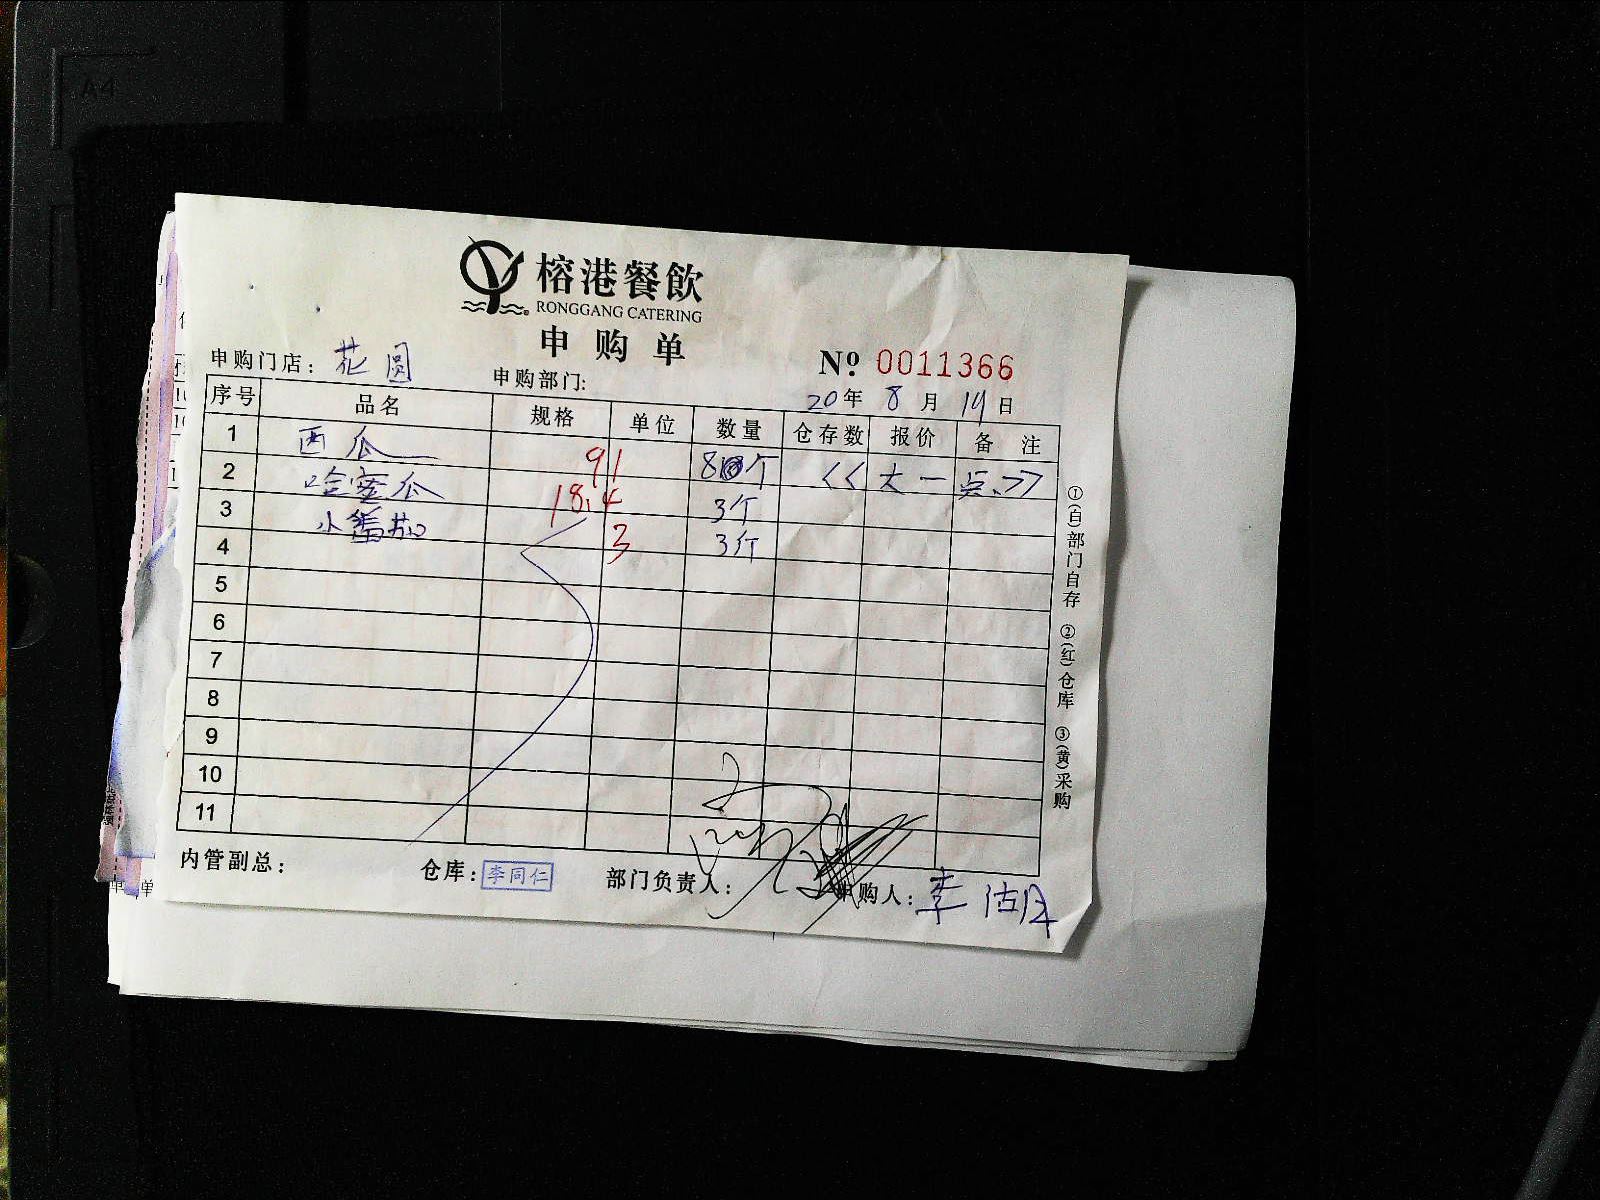 A4
榕港餐飲
RONGGANG CATERING
申购单
申购门店：花圆 申购部门: № 0011366
20年 8月 19日
序号 品名 规格 单位 数量 仓存数 报价 备注
1 西瓜 91 8个 <<大一点>>
2 哈蜜瓜 18.4 3个
3 小番茄 3 3斤
4
5
6
7
8
9
10
11
①(白)部门自存 ②(红)仓库 ③(黄)采购
内管副总： 仓库：李同仁 部门负责人： 申购人：李
单 单